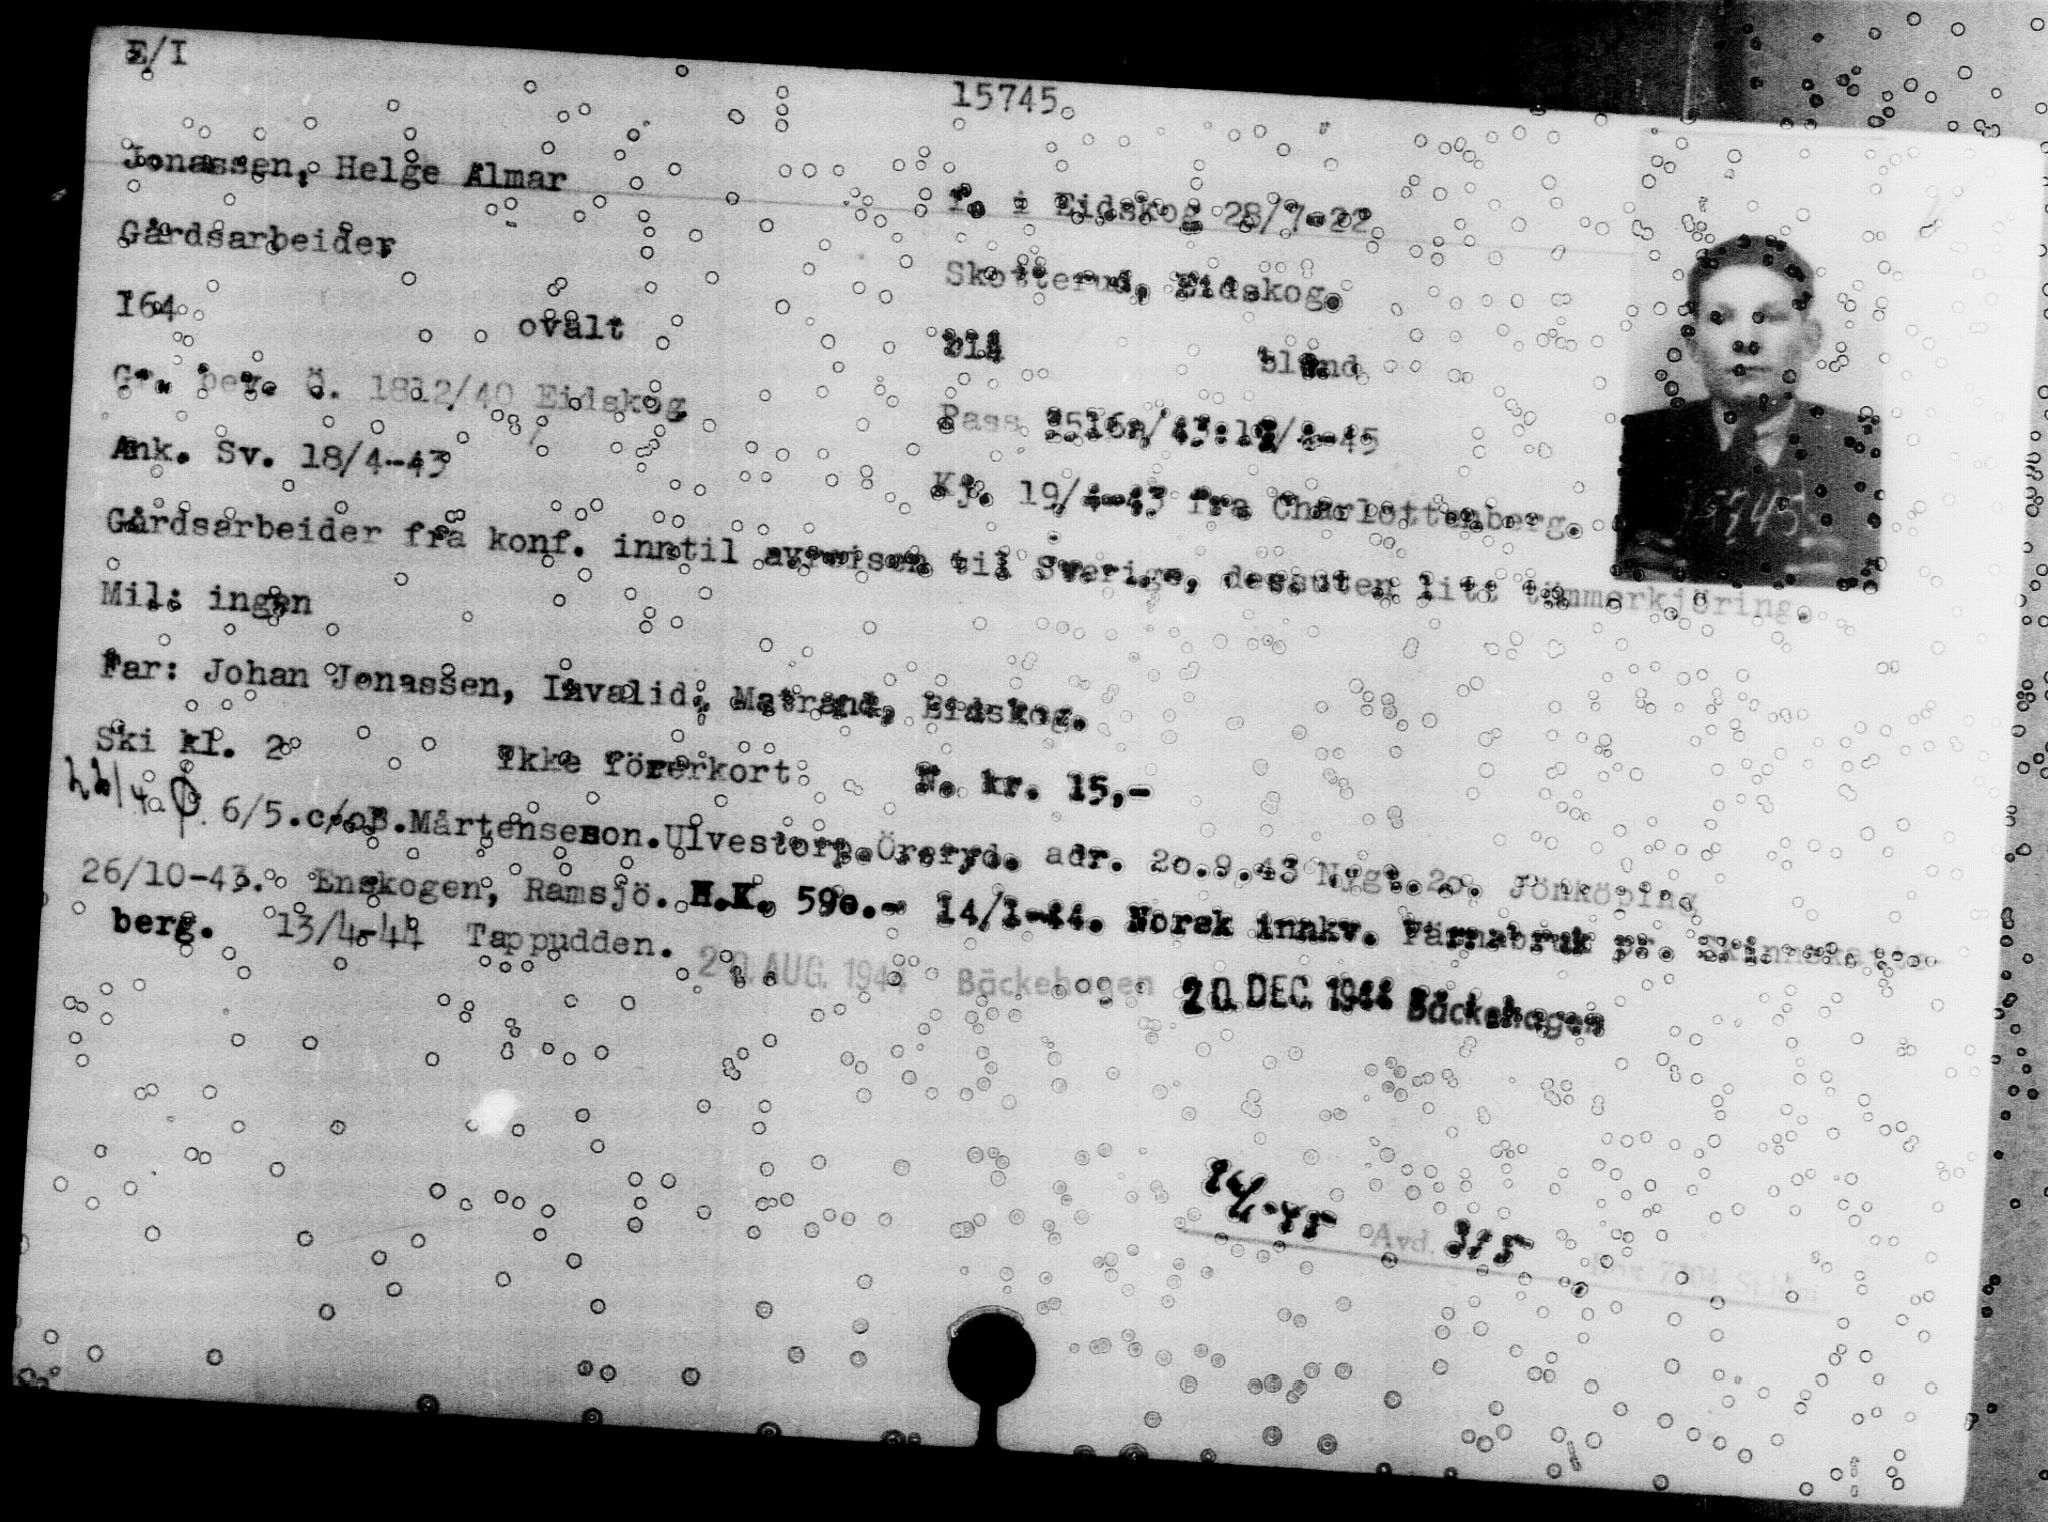 E/I
15745
Jonassen, Helge Almar
f. i Eidskog 28/7-22
Gårdsarbeider
Skotterud, Eidskog.
164 ovalt
blå blond
Gr. bev. Ö. 1812/40 Eidskog
Pass
Ank. Sv. 18/4-43
Kj. 19/4-43 fra Charlottenberg.
Gårdsarbeider fra konf. inntil avreisen til Sverige, dessuten litt tömmerkjöring.
Mil: ingen
Far: Johan Jonassen, Invalid, Matrand, Eidskog.
Ski kl. 2 Ikke förerkort N. kr. 15,-
6/5.c/oB.Mårtensson.Ulvestorp.Öreryd. adr. 20.9.43 Nygt.20. Jönköping
26/10-43. Enskogen, Ramsjö. H.K. 590.- 14/1-44. Norsk innkv. Färnabruk pr. Skinnskatte-
berg. 13/4-44 Tappudden.
AUG. 1944 Bäckehagen 20. DEC. 1944 Bäckehagen
Avd. 315
15745